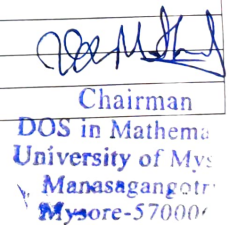 Chairman
DOS in Mathema
University of Mys
Manasagangotr
Mysore-57000